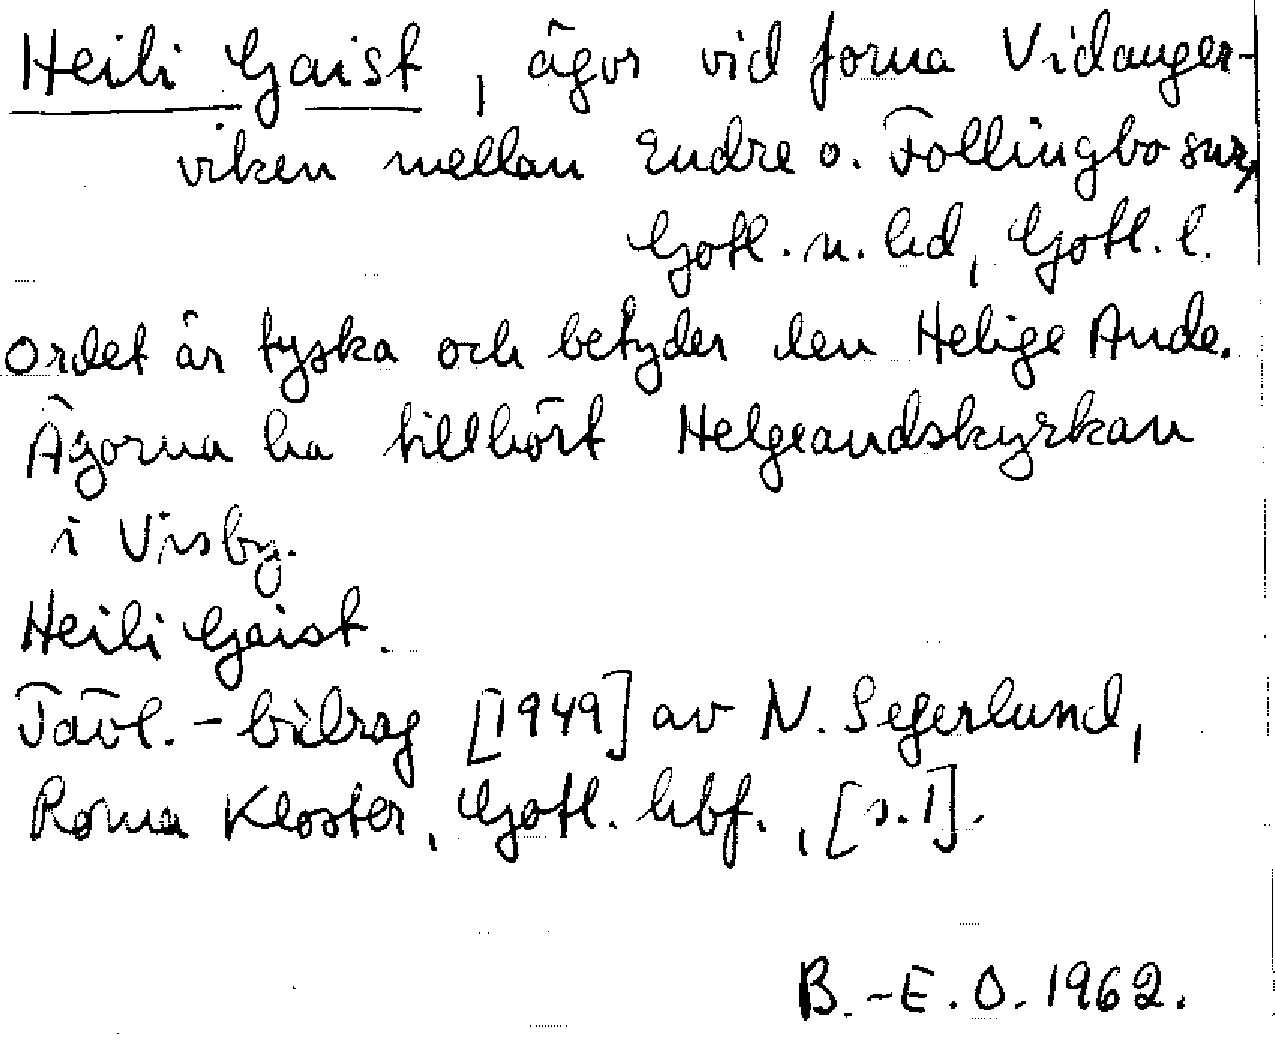 Heili Gaist, ägor vid forna Vidanger-
viken mellan Endre o. Follingbo snr,
Gotl. n. hd, Gotl. l.
Ordet är tyska och betyder den Helige Ande.
Ägorna ha tillhört Helgeandskyrkan
i Visby.
Heili Gaist.
Tävl.-bidrag [1949] av N. Segerlund,
Roma Kloster, Gotl. hbf., [s.1].
B.-E.O. 1962.